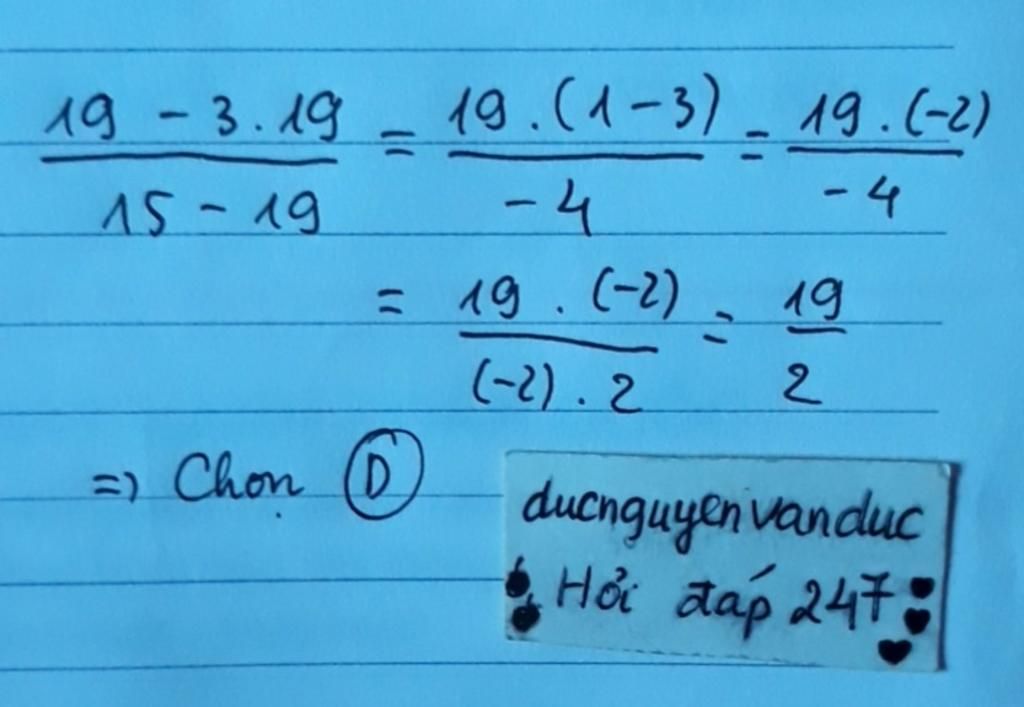 19 - 3 . 19 / 15 - 19 = 19 . (1 - 3) / -4 = 19 . (-2) / -4
= 19 . (-2) / (-2) . 2 = 19 / 2
=> Chọn D
ducnguyenvanduc
Hỏi đáp 247